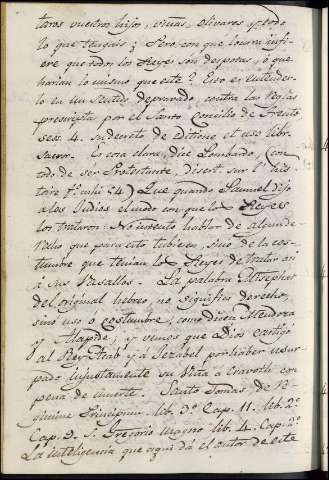 taros vuestros hijos, viñas, olivares y todo
lo que tengais; Pero con que locura infi-
ere que todos los Reyes son despotas, o que
harian lo mismo que este? Eso es entender-
lo en un sentido depravado, contra las reglas
prescripta por el Santo Concilio de Trento
ses. 4. su decreto de editione et usu libr.
sacror. Es cosa clara, dice Lombardo, (con
todo de ser Protestante, disert. sur l' his-
toire
Que quando Samuel dijo
a los Judios el modo con que los Reyes
los trataron: No intento hablar de algun de-
recho que para esto tubiese, sino de la cos-
tumbre que tenian los Reyes de tratar asi
a sus Vasallos. La palabra
del original hebreo, no significa derecho,
sino uso ó costumbre; como dicen Mendoza
y Alapide, y vemos que Dios castigó
al Rey Acab y á Jezabel por haber usur-
pado injustamente su Viña a Naboth con
pena de muerte. Santo Tomas, de Re-
gimine Principum lib. 3º Cap. 11. lib. 2º
Cap. 9. S. Gregorio magno lib. 4. Cap. 2º
La inteligencia que aqui dá el autor de este